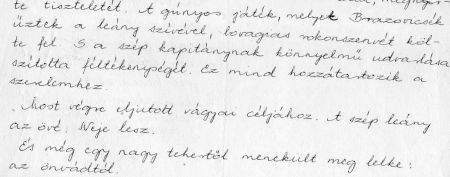 te tiszteletét. A gúnyos játék, melyet Brazovicsék
űztek a leány szívével, lovagias rokonszenvét köl-
te fel. S a szép kapitánynak könnyelmű udvarlása
szította féltékenységét. Ez mind hozzátartozik a
szerelemhez.
Most végre eljutott vágyai céljához. A szép leány
az övé. Neje lesz.
És még egy nagy tehertől menekült meg lelke:
az önvádtól.